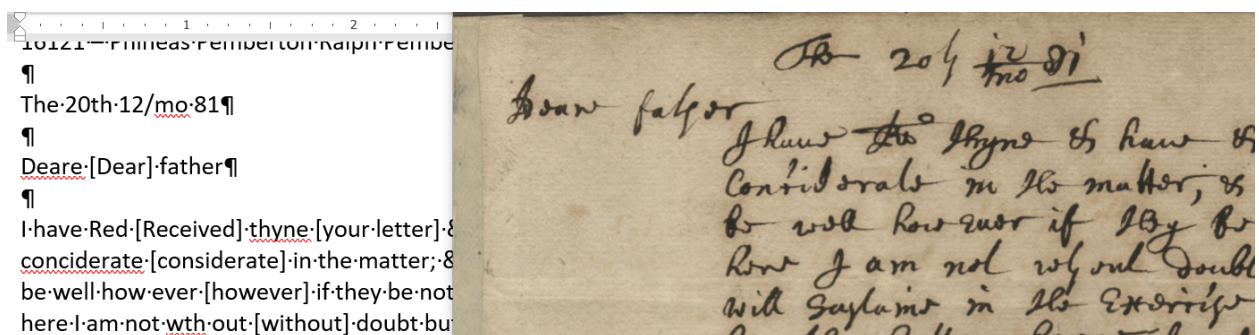 1 2
16121 — Phineas·Pemberton·Ralph·Pembe
¶
The·20th·12/mo·81¶
¶
Deare·[Dear]·father¶
¶
I·have·Red·[Received]·thyne·[your·letter]·&
conciderate·[considerate]·in·the·matter;·&
be·well·how·ever·[however]·if·they·be·not
here·I·am·not·wth·out·[without]·doubt·but
The 20th 12/mo 81
Deare father
I have thyne & have
Conciderate in the matter, &
be well how ever if they be
here I am not wth out doubt
will in the Exercise